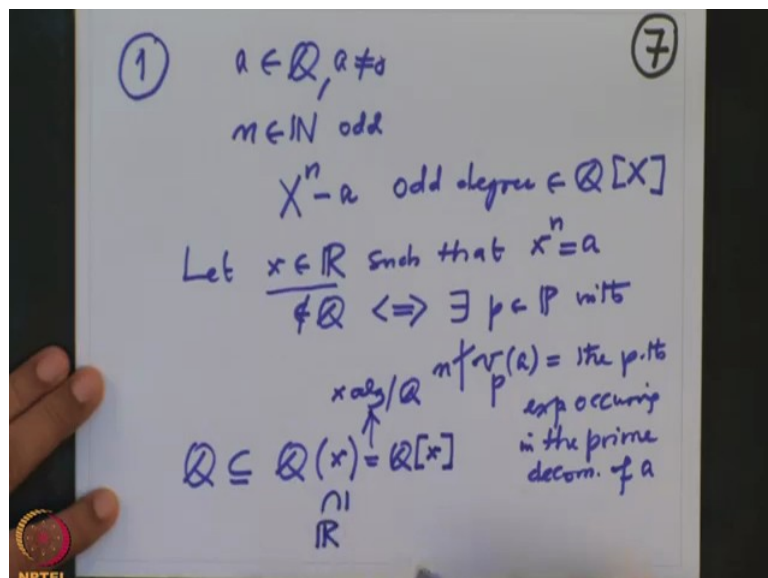 ① a ∈ ℚ, a ≠ 0
⑦
n ∈ ℕ odd
Xⁿ - a odd degree ∈ ℚ[X]
Let x ∈ ℝ such that xⁿ = a
∉ ℚ <=> ∃ p ∈ ℙ with
n ∤ v_p(a) = the p-th
exp occuring
in the prime
decom. of a
x alg/ℚ
↑
ℚ ⊆ ℚ(x) = ℚ[x]
∩|
ℝ
NPTEL